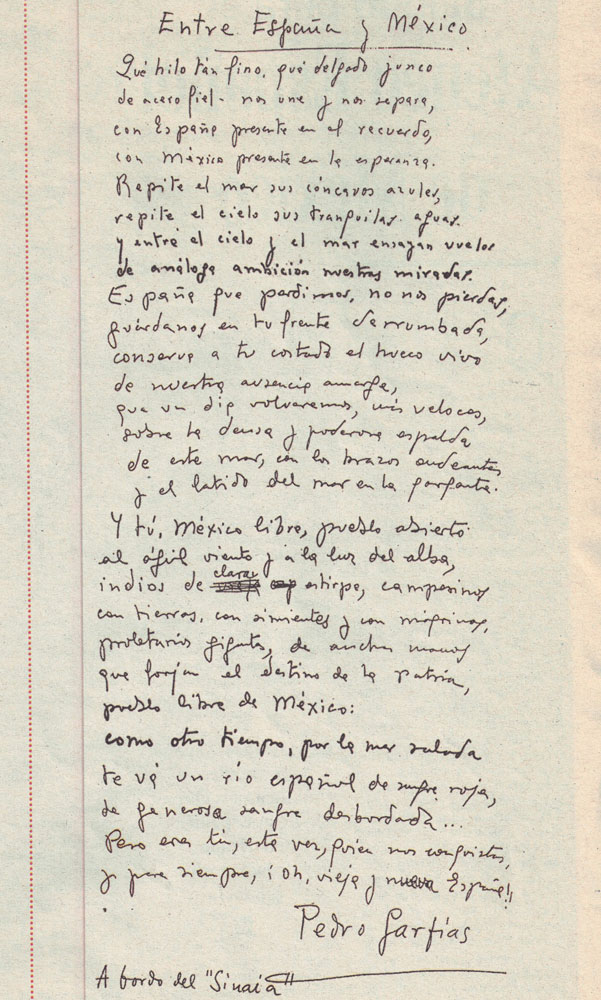 Entre España y México
Qué hilo tan fino, qué delgado junco
de acero fiel - nos une y nos separa,
con España presente en el recuerdo,
con México presente en la esperanza.
Repite el mar sus cóncavos azules,
repite el cielo sus tranquilas aguas.
y entre el cielo y el mar ensayan vuelos
de análoga ambición nuestras miradas.
España que perdimos, no nos pierdas,
guárdanos en tu frente derrumbada,
conserva a tu costado el hueco vivo
de nuestra ausencia amarga,
que un día volveremos, más veloces,
sobre la densa y poderosa espalda
de este mar, con los brazos ondeantes
y el latido del mar en la garganta.
Y tú, México libre, pueblo abierto
al ágil viento y a la luz del alba,
indios de clara estirpe, campesinos
con tierras, con simientes y con máquinas,
proletarios gigantes, de anchas manos
que forjan el destino de la patria,
pueblo libre de México:
como otro tiempo, por la mar salada
te vá un río español de sangre roja,
de generosa sangre desbordada...
Pero eres tú, esta vez, quien nos conquistas,
y para siempre, ¡oh, vieja y nueva España!!
Pedro Garfias
A bordo del "Sinaia"